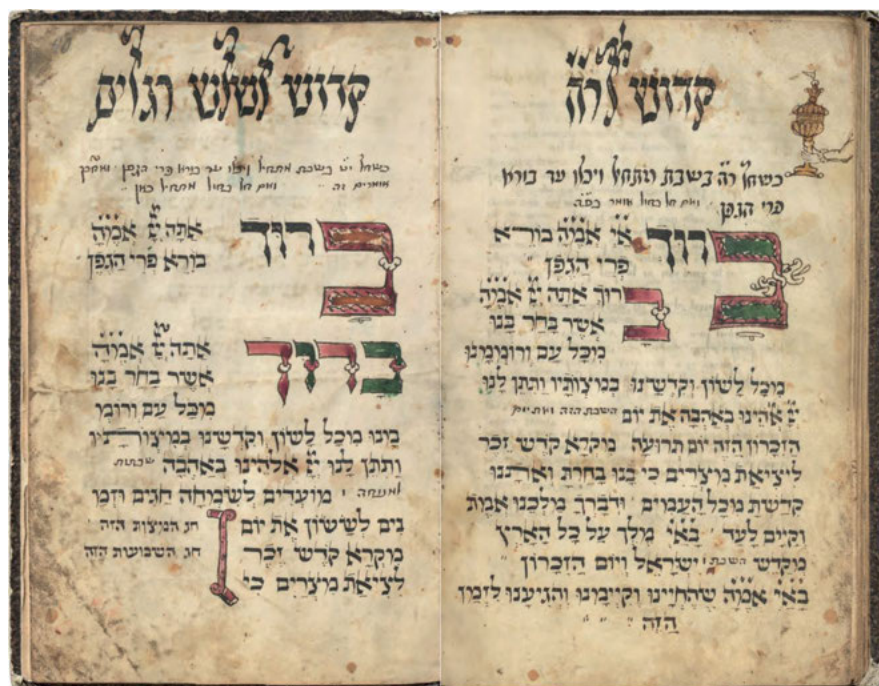 קדוש לר"ה
כשחל ר"ה בשבת מתחיל ויכלו עד בורא
פרי הגפן
ואם חל בחול אומר
בָּרוּךְ אַ"יֳ אֱמָ"הָ בּוֹרֵא
פְּרִי הַגֶּפֶן
בָּרוּךְ אַתָּה יְ"יָ אֱמָ"הָ
אֲשֶׁר בָּחַר בָּנוּ
מִכָּל עַם וְרוֹמְמָנוּ
מִכָּל לָשׁוֹן וְקִדְּשָׁנוּ בְּמִצְוֹתָיו וַתִּתֶּן לָנוּ
יְ"יָ אֱ'הֵינוּ בְּאַהֲבָה אֶת יוֹם השבת הזה ואת יום
הַזִּכָּרוֹן הַזֶּה יוֹם תְּרוּעָה מִקְרָא קֹדֶשׁ זֵכֶר
לִיצִיאַת מִצְרַיִם כִּי בָנוּ בָחַרְתָּ וְאוֹתָנוּ
קִדַּשְׁתָּ מִכָּל הָעַמִּים וּדְבָרְךָ מַלְכֵּנוּ אֱמֶת
וְקַיָּים לָעַד בָּאַ"יֳ מֶלֶךְ עַל כָּל הָאָרֶץ
מְקַדֵּשׁ השבת ו יִשְׂרָאֵל וְיוֹם הַזִּכָּרוֹן
בָּאַ"יֳ אֱמָ"הָ שֶׁהֶחֱיָינוּ וְקִיְּימָנוּ וְהִגִּיעָנוּ לַזְּמַן
הַזֶּה
קדוש לשלש רגלים
כשחל י"ט בשבת מתחיל ויכלו עד בורא פרי הגפן ואח"כ
אומרים זה ואם חל בחול מתחיל כאן
בָּרוּךְ אַתָּה יְ"יָ אֱמָ"הָ
בּוֹרֵא פְּרִי הַגֶּפֶן
ברוך אַתָּה יְ"יָ אֱמָ"הָ
אֲשֶׁר בָּחַר בָּנוּ
מִכָּל עַם וְרוֹמְ
מָנוּ מִכָּל לָשׁוֹן וְקִדְּשָׁנוּ בְּמִצְוֹתָיו
וַתִּתֶּן לָנוּ יְ"יָ אֱלֹהֵינוּ בְּאַהֲבָה שבתות
למנוחה ו מוֹעֲדִים לְשִׂמְחָה חַגִּים וּזְמַ
נִּים לְשָׂשׂוֹן אֶת יוֹם חג המצות הזה
מִקְרָא קֹדֶשׁ זֵכֶר חג השבועות הזה
לִצִיאַת מִצְרַיִם כִּי